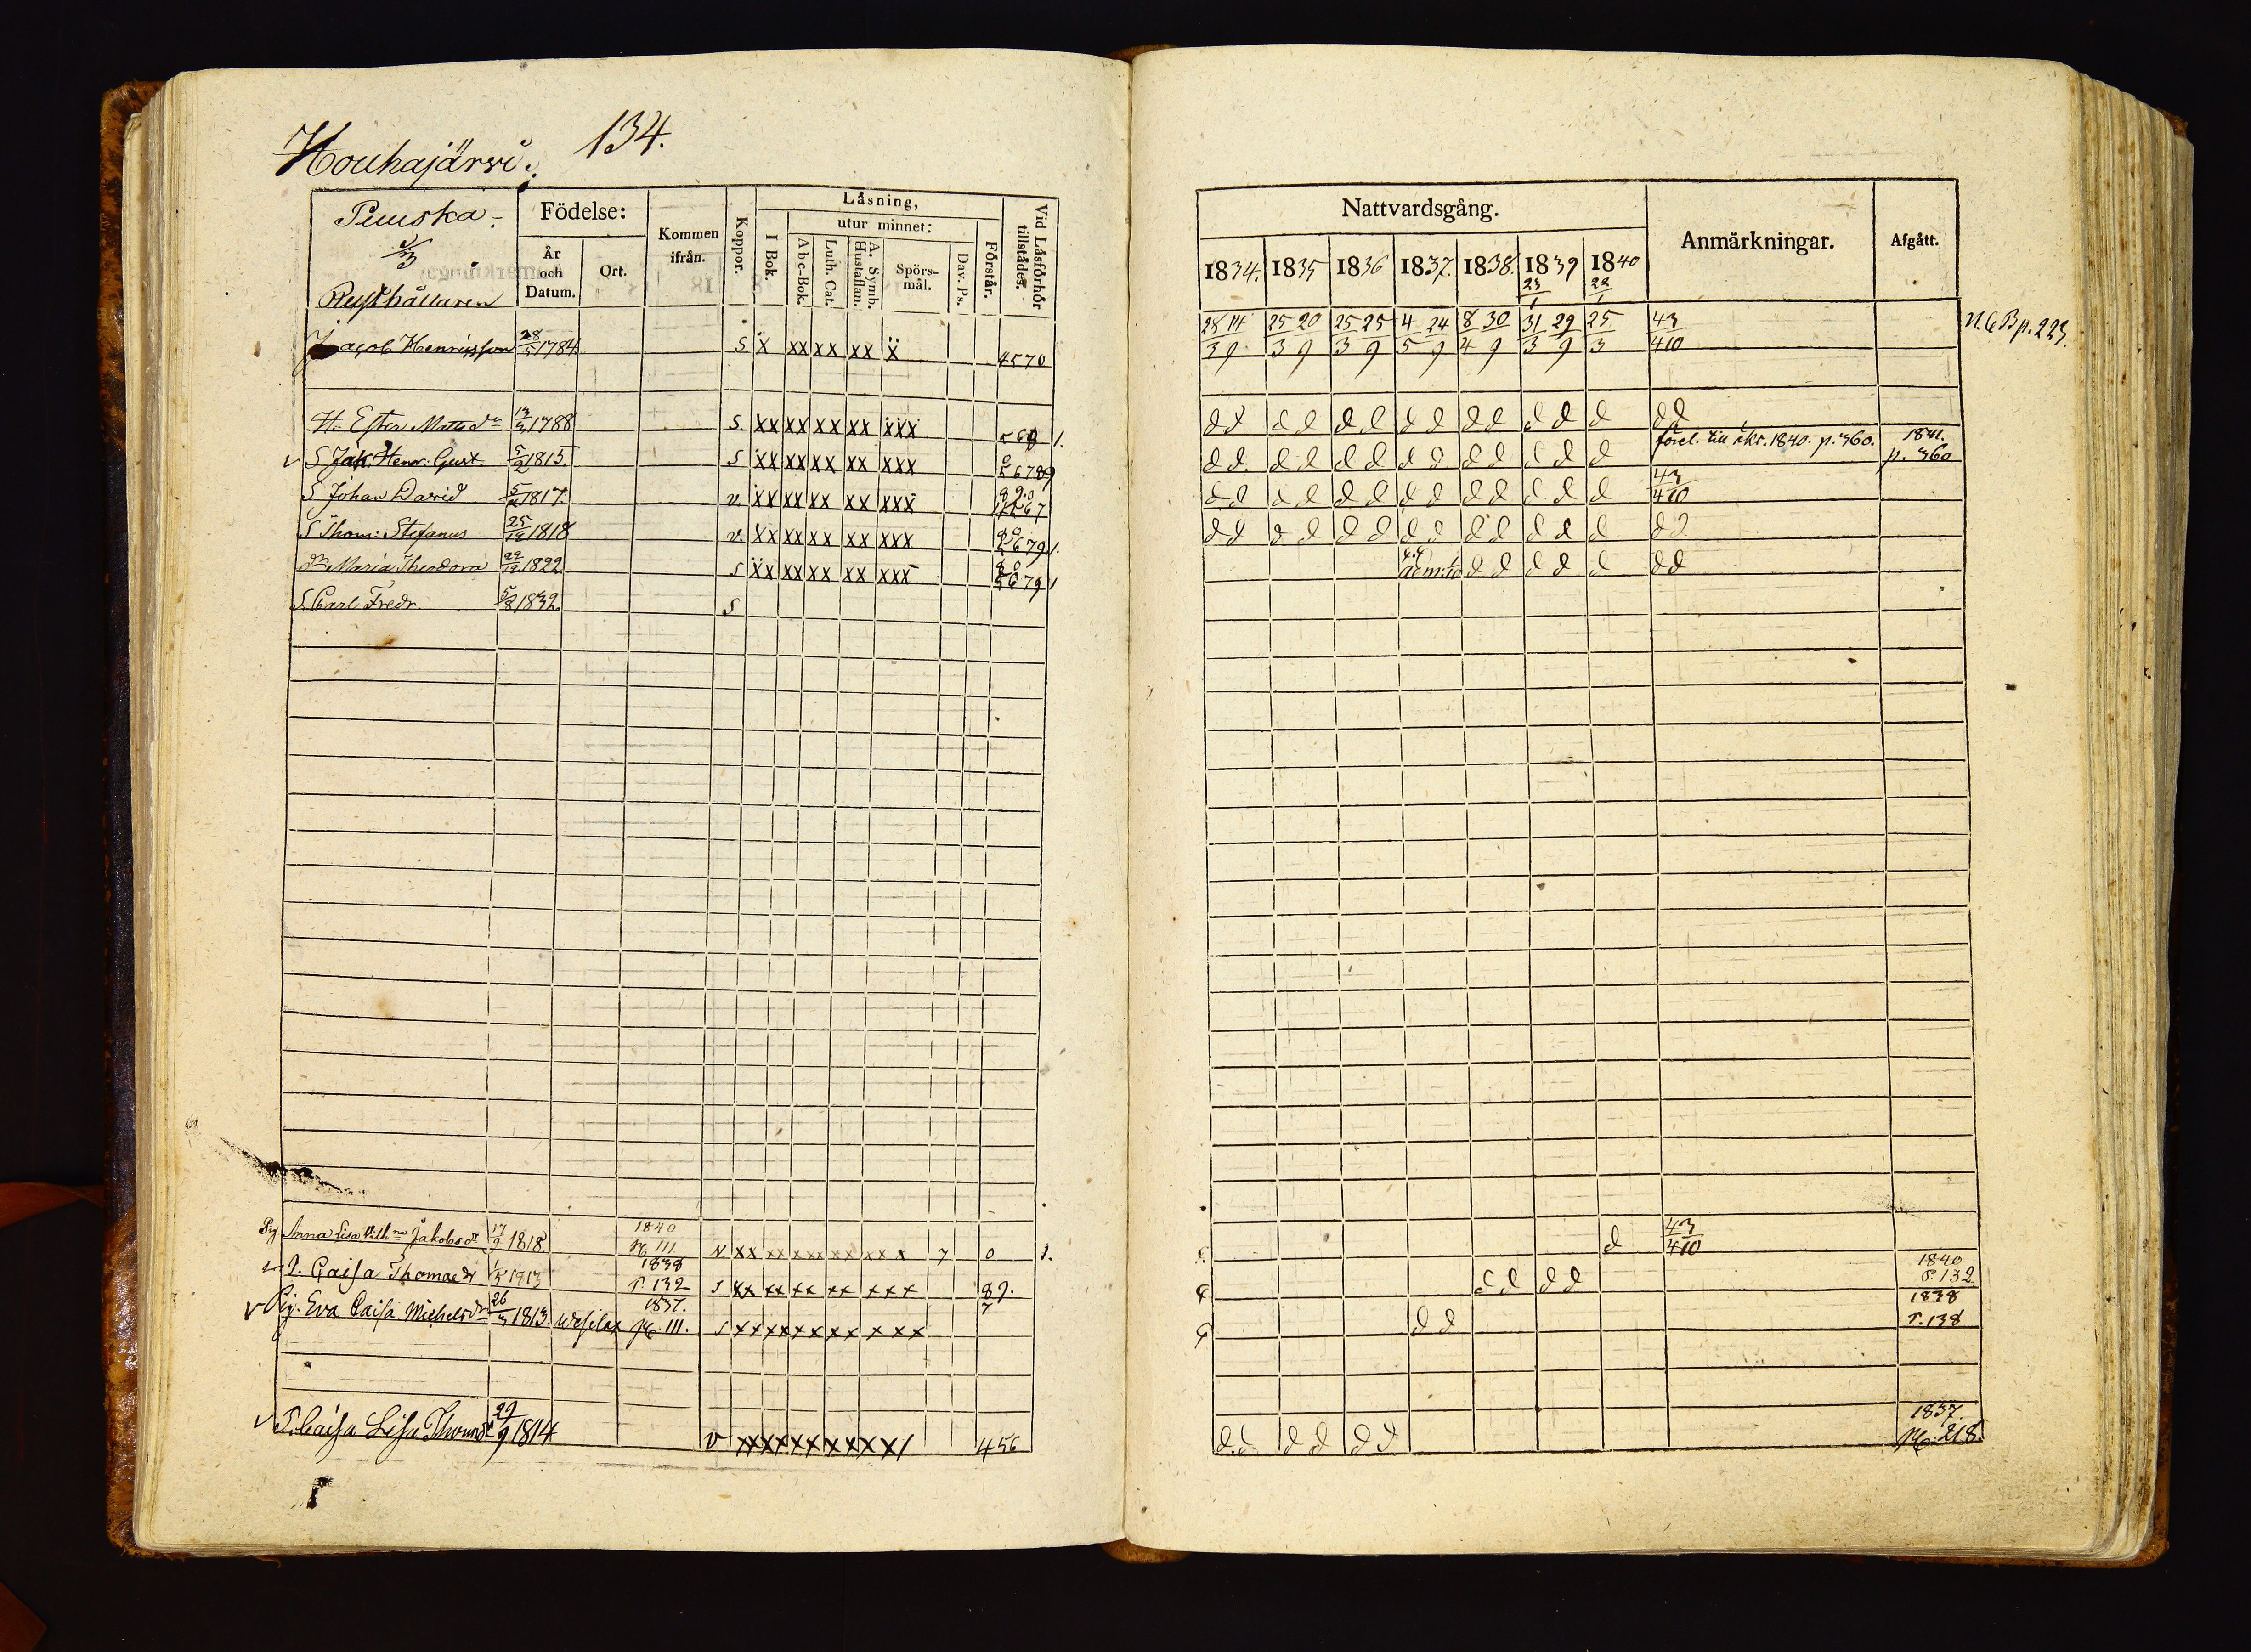 Houhajärvi. 134.
Puuska.
Rusthållaren
Födelse:
År och Datum.
Ort.
Kommen ifrån.
Koppor.
Läsning,
I Bok.
utur minnet:
Abc-Bok.
Luth. Cat.
A. Symb. Hustaflan.
Spörs-mål.
Dav. Ps.
Förstår.
Vid Läsförhör tillstädes.
Jacob Henricsson 28/5 1784 S X XX XX XX X 4570
H. Ester Matts dr 1788 S XX XX XX XX XXX 1.
S Jak. Henr. Gust. 5/2 1815. S XX XX XX XX XXX 56789
S Johan David 1817 v. XX XX XX XX XXX
S Thom: Stefanus 25/12 1818 v. XX XX XX XX XXX 5679 1.
Dr Maria Theodora 22/12 1822 S XX XX XX XX XXX 5679 1
S. Carl Fredr. 5/8 1832. S
Pig. Anna Lisa Vilh. Jakobsdr 17/9 1818 1840 p. 111 v XX XX XX XX XX X 7 0 1.
P. Caisa Thomaedr 1913 1838 P. 132 S XX XX XX XX XXX 89.
Pig. Eva Caisa Michelsdr 26 1813. Wesilax 1837. p. 111. S XX XX XX XX XXX 7
P. Caisa Lisa Thomedr 29/9 1814 v XX XX XX XX XX/ 456
Nattvardsgång.
Anmärkningar.
Afgått.
1834. 1835 1836 1837. 1838. 1839 1840
23/1 22/1
28/3 14/9 25/3 20/9 25/3 25/9 4/5 24/9 8/4 30/9 31/3 29/9 25/3 43 410 N.C.B p. 223.
d d d d d d d d d d d d d d d
d d d d d d d d d d d d d förel. till åkr. 1840. p. 360. 1841. p. 360
d d d d d d d d d d d d d 43 410
d d d d d d d d d d d d d d d
adm: d d d d d d d
d 43 410
d d d d 1840 P. 132
d d 1838 P. 138
d. d. d d d d 1837. p. 218.